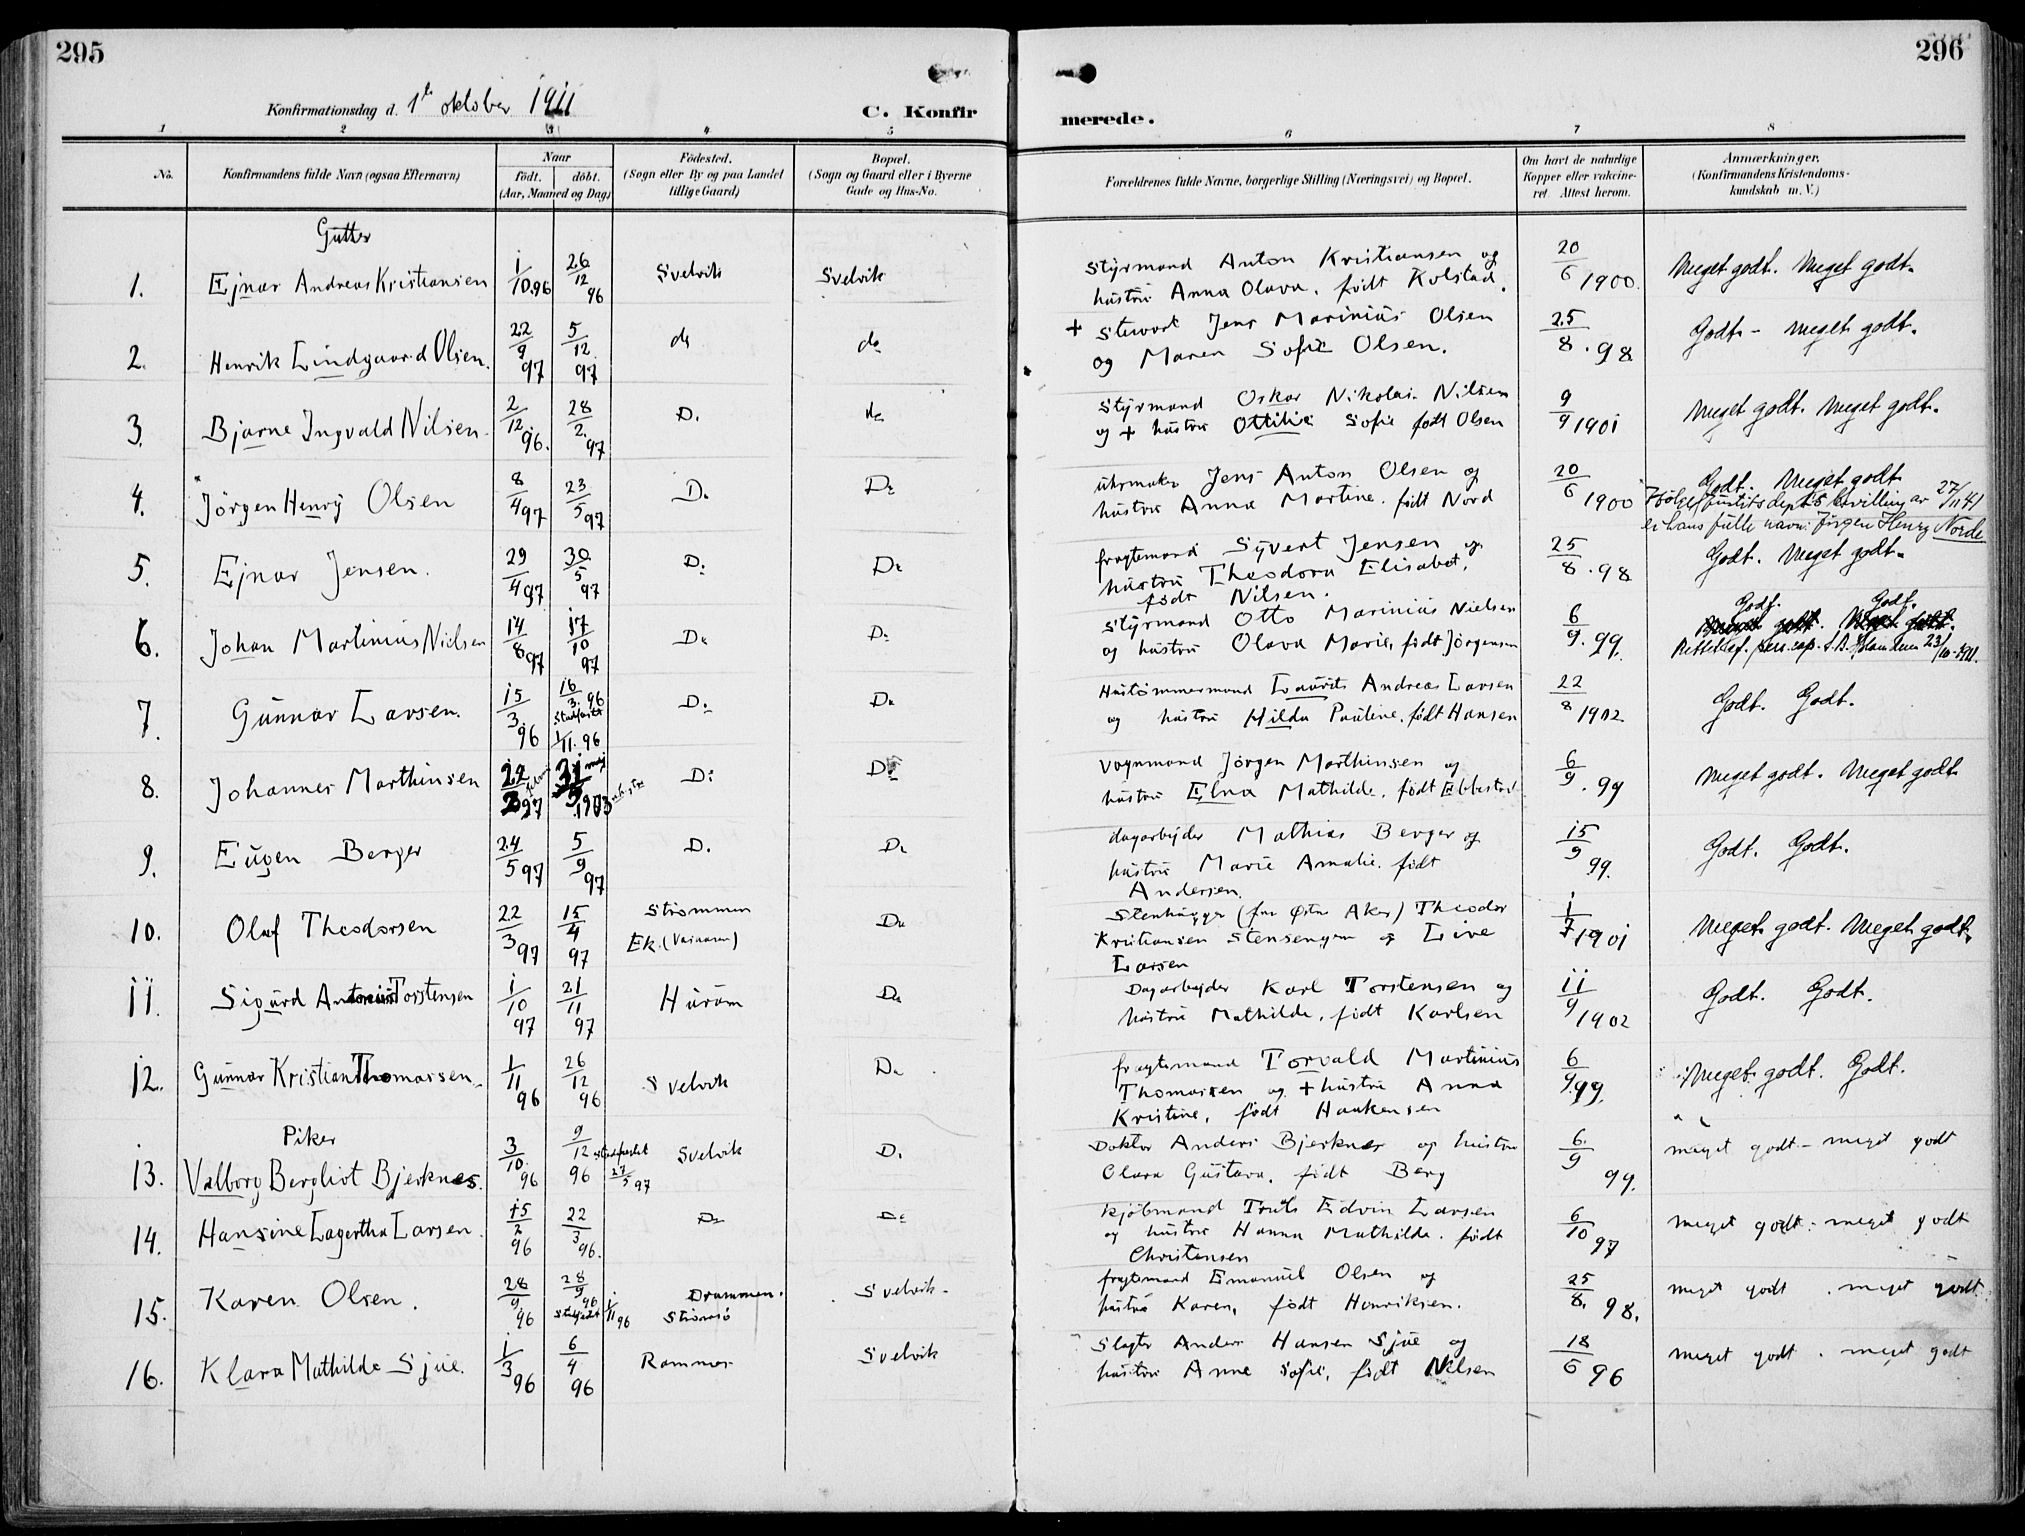 295
296
Konfirmationsdag d. 1te oktober 1911
C. Konfir
merede.
1 2 3 4 5
6 7 8
No.
Konfirmandens fulde Navn (ogsaa Efternavn)
Naar
födt. döbt.
(Aar, Maaned og Dag)
Födested.
(Sogn eller By og paa Landet
tillige Gaard)
Bopæl.
(Sogn og Gaard eller i Byerne
Gade og Hus-No.
Forældrenes fulde Navne, borgerlige Stilling (Næringsvei) og Bopæl.
Om havt de naturlige
Kopper eller vakcine-
ret. Attest herom.
Anmærkninger.
(Konfirmandens Kristendoms-
kundskab m. V.)
Gutter
1. Ejnar Andreas Kristiansen 1/10.96 26/12 96 Svelvik Svelvik
Styrmand Anton Kristiansen og
hustru Anna Olava, födt Kolstad.
20/6 1900. Meget godt. Meget godt.
2. Henrik Lindgaard Olsen. 22/9 97 5/12 97 do do
+ Stuvort Jens Marinius Olsen
og Maren Sofie Olsen.
25/8.98 Godt - meget godt.
3. Bjarne Ingvald Nilsen 2/12 96. 28/2. 97 D. do
Styrmand Oskar Nikolai Nilsen
og + hustru Ottilie Sofie födt Olsen
9/9 1901 Meget godt. Meget godt.
4. Jörgen Henry Olsen 8/4 97 23/5 97 Do Do
uhrmaker Jens Anton Olsen og
hustru Anna Martine, födt Nord
20/6 1900 Godt. Meget godt
Ifölge justitsdepts bevilling av 27/11 41
er hans fulle navn: Jörgen Henry Norde
5. Ejnar Jensen. 29/4 97 30/5 97 Do Do
fragtemand Syvert Jensen og
hustru Theodora Elisabet,
födt Nilsen.
25/8.98 Godt. Meget godt.
6. Johan Martinius Nielsen 14/8 97 17/10 97 Do Do
Styrmand Otto Marinius Nielsen
og hustru Olava Marie, födt Jörgensen
6/9.99. Godt. Godt.
Rettet 23/10-1911.
7. Gunnar Larsen. 15/3 96 16/3.96 Stadfæstet 1/11.96 Do Do
Hustömmermand Laurits Andreas Larsen
og hustru Hilda Pauline, födt Hansen
22/8 1902 Godt. Godt.
8. Johannes Marthinsen 97 1903 Do Do
Vognmand Jörgen Marthinsen og
hustru Elna Mathilde, födt
6/9.99 Meget godt. Meget godt
9. Eugen Berger 24/5 97 5/9 97 D. Do
dagarbejder Mathias Berger og
hustru Marie Amalie, födt
Andersen.
15/9 99. Godt. Godt.
10. Olaf Theodorsen 22/3 97 15/4 97 Strömmen Do
Ek.
Stenhugger Theodor
Kristiansen Stensengen og Live
Larsen
1/7 1901 Meget godt. Meget godt.
11. Sigurd Antonius Torstensen 1/10 97 21/11 97 Hurum Do
Dagarbejder Karl Torstensen og
hustru Mathilde, födt Karlsen
11/9 1902 Godt. Godt.
12. Gunnar Kristian Thomassen 1/11 96 26/12 96 Svelvik Do
fragtemand Torvald Martinius
Thomassen og + hustru Anna
Kristine, födt Haakensen
6/9.99. Meget godt. Godt.
Piker
13. Valborg Bergliot Bjerknes. 3/10 96 9/12 96 Stadfæstet 27/5 97 Svelvik D.
Doktor Anders Bjerknes og hustru
Olara Gustava, födt Berg
6/9 99. meget godt - meget godt
14. Hansine Lagertha Larsen. 15/2 96 22/3 96. Do Do
kjöbmand Truls Edvin Larsen
og hustru Hanna Mathilde, födt
Christensen
6/10 97 meget godt - meget godt
15. Karen Olsen. 28/9 96 28/9 96 1/11 96 Drammen. Svelvik.
Strömsö
fragtemand Emanuel Olsen og
hustru Karen, födt Henriksen.
25/8. 98. meget godt. meget godt
16. Klara Mathilde Sjue. 1/3 96 6/4 96 Ramnes Svelvik
Slagter Anders Hansen Sjue og
hustru Anne Sofie, födt Nilsen
18/6 96 meget godt. meget godt